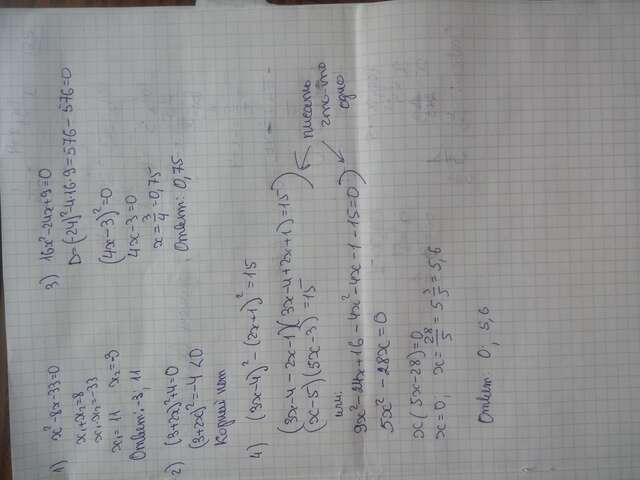 1) x²-8x-33=0
x₁+x₂=8
x₁·x₂=-33
x₁= 11 x₂=-3
Ответ: -3; 11
2) (3+2x)²+4=0
(3+2x)²=-4<0
Корней нет
3) 16x²-24x+9=0
D=(24)²-4·16·9=576-576=0
(4x-3)²=0
4x-3=0
x=3/4=0,75
Ответ: 0,75
4) (3x-4)²-(2x+1)²=15
(3x-4-2x-1)(3x-4+2x+1)=15
(x-5)(5x-3)=15
или:
9x²-24x+16-4x²-4x-1-15=0
писать
что-то
одно
5x²-28x=0
x(5x-28)=0
x=0; x=28/5=5 3/5=5,6
Ответ: 0; 5,6